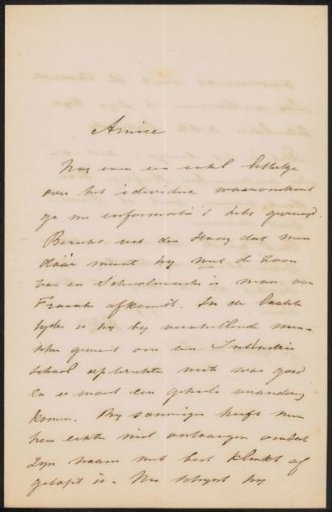 Amice
Nog even een enkel
over het individu waaromtrent
ge me informatie's hebt gevraagd.
Bericht uit den Haag dat men
dáár meent hij met de zoon
van een Schoolmeester is maar van
Fransche afkomst. In de laatste
tijden is hij bij verschillende men-
schen geweest om een Industrie
school op te richten niets was goed
en er moest een geheele verandering
komen. Bij sommigen heeft men
hem echter niet ontvangen omdat
zijn naam niet best klinkt of
is. Nu schijnt hij